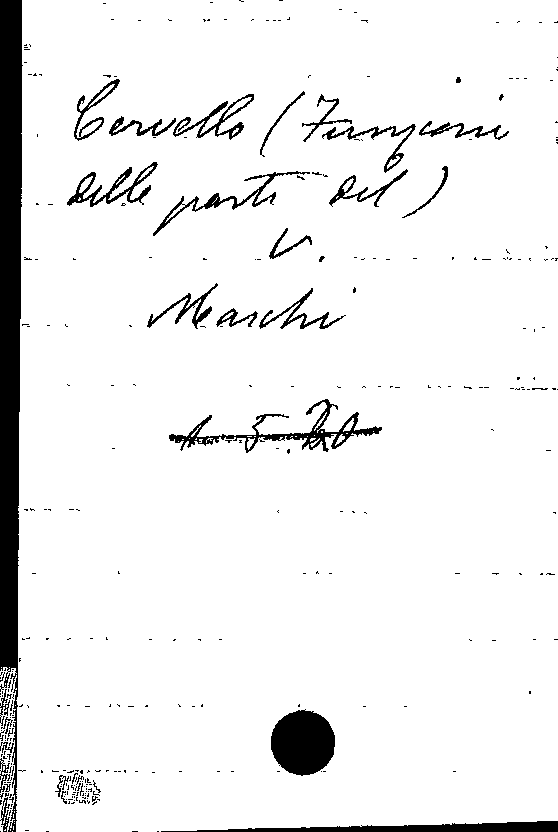 Cervello (Funzioni
delle parti del)
V.
Marchi